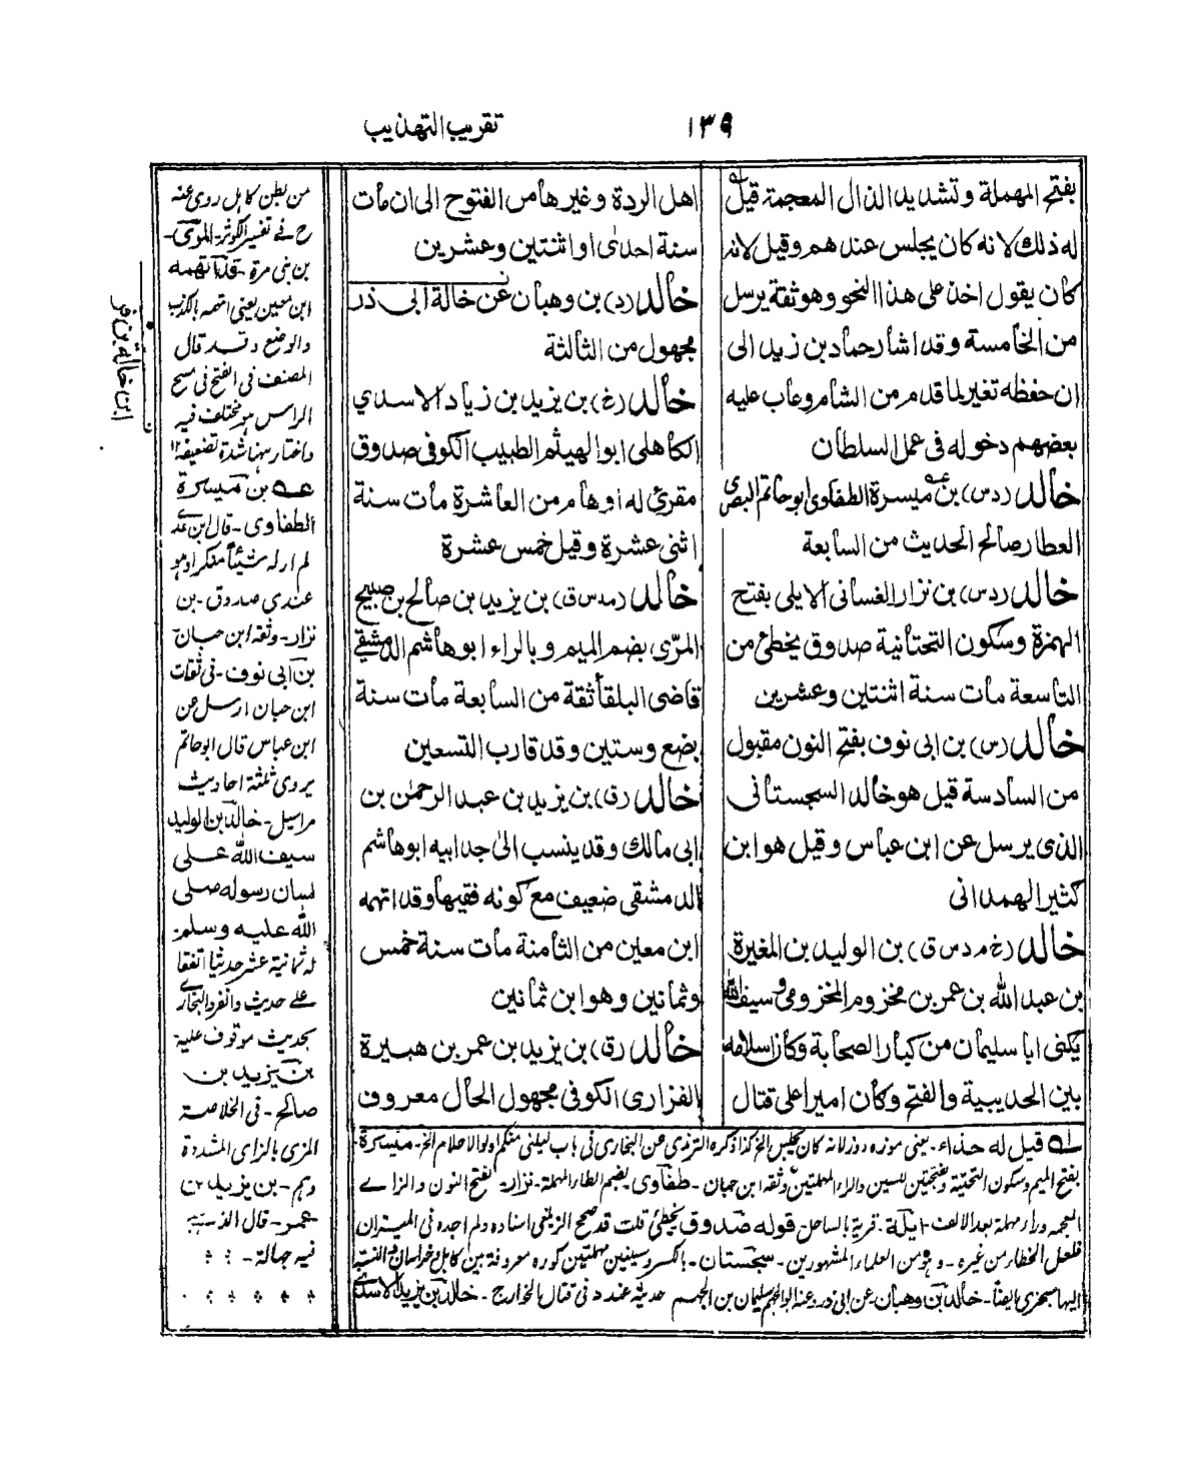 ١٣٩
تقريب التهذيب
بفتح المهملة وتشديد الذال المعجمة قيل
له ذلك لانه كان يجلس عندهم وقيل لانه
كان يقول اخذ على هذا النحو وهو ثقة يرسل
من الخامسة وقد اشار حماد بن زيد الى
ان حفظه تغير لما قدم من الشام وعاب عليه
بعضهم دخوله فى عمل السلطان
خالد (د س) بن ميسرة الطفاوى ابو حاتم البصرى
العطار صالح الحديث من السابعة
خالد (د س) بن نزار الغسانى الايلى بفتح
الهمزة وسكون التحتانية صدوق يخطئ من
التاسعة مات سنة اثنتين وعشرين
خالد (س) بن ابى نوف بفتح النون مقبول
من السادسة قيل هو خالد السجستانى
الذى يرسل عن ابن عباس وقيل هو ابن
كثير الهمدانى
خالد (خ م د س ق) بن الوليد بن المغيرة
بن عبد الله بن عمر بن مخزوم المخزومى سيف الله
يكنى ابا سليمان من كبار الصحابة وكان اسلامه
بين الحديبية والفتح وكان اميرا على قتال
اهل الردة وغيرها من الفتوح الى ان مات
سنة احدى او اثنتين وعشرين
خالد (د) بن وهبان عن خالة ابى ذر
مجهول من الثالثة
خالد (خ) بن يزيد بن زياد الاسدي
الكاهلى ابو الهيثم الطبيب الكوفى صدوق
مقرئ له اوهام من العاشرة مات سنة
اثنى عشرة وقيل خمس عشرة
خالد (مد س ق) بن يزيد بن صالح بن صبيح
المرّى بضم الميم وبالراء ابو هاشم الدمشقي
قاضى البلقاء ثقة من السابعة مات سنة
بضع وستين وقد قارب التسعين
خالد (ق) بن يزيد بن عبد الرحمٰن بن
ابى مالك وقد ينسب الىٰ جد ابيه ابو هاشم
الدمشقى ضعيف مع كونه فقيها وقد اتهمه
ابن معين من الثامنة مات سنة خمس
وثمانين وهو ابن ثمانين
خالد (ق) بن يزيد بن عمر بن هبيرة
الفزارى الكوفى مجهول الحال معروف
من بطن كاهل روى عنه
خ فے تفسير الكوثر۔ المزى۔
بن بنى مرة۔ قد اتهمه
ابن معين يعنى اتهمه بالكذب
والوضع وقد قال
المصنف فى الفتح فى مسح
الراس هو مختلف فيه
واختار منها شدة تضعيفه ١٢
عه بن ميسرة
الطفاوى۔ قال ابن عدے
لم ار له شيئا منكرا وهو
عندى صدوق۔ بن
نزار۔ وثقه ابن حبان
بن ابى نوف۔ فى ثقات
ابن حبان ارسل عن
ابن عباس قال ابو حاتم
يروى ثلثة احاديث
مراسيل۔ خالد بن الوليد
سيف الله على
لسان رسوله صلى
الله عليه وسلم
له ثمانية عشر حديثا اتفقا
علے حديث وانفرد البخارى
بحديث موقوف عليه
بن يزيد بن
صالح۔ فى الخلاصة
المزى بالزاى المشددة
وهم۔ بن يزيد بن
عمر۔ قال الذهبى
فيه جهالة۔
له قيل له حذاء۔ يعنى موزه دوز لانه كان يجلس الخ كذا ذكره الترمذى عن البخارى فى باب ليلينى منكم اولوا الاحلام الخ۔ ميسرة
بفتح الميم وسكون التحتية وبفتحتين للسين والراء المهملتين وثقه ابن حبان۔ طفاوى بضم الطاء المهملة۔ نزار۔ بفتح النون والزاے
المعجمة وراء مهملة بعد الالف۔ ايلة۔ قرية بالساحل قوله صدوق يخطئ قلت قد صحح الزيلعى اسناده ولم اجده فى الميزان
فلعل الخطا من غيره۔ وهو من العلماء المشهورين۔ سجستان۔ بالكسر وسينين مهملتين كوره معروفة بين كابل وخراسان النسبة
اليها سجزى ايضا۔ خالد بن وهبان۔ عن ابى ذر عنه ابو الجهم سليمان بن الجهم حديثه عند د فى قتال الخوارج۔ خالد بن يزيد الاسدے